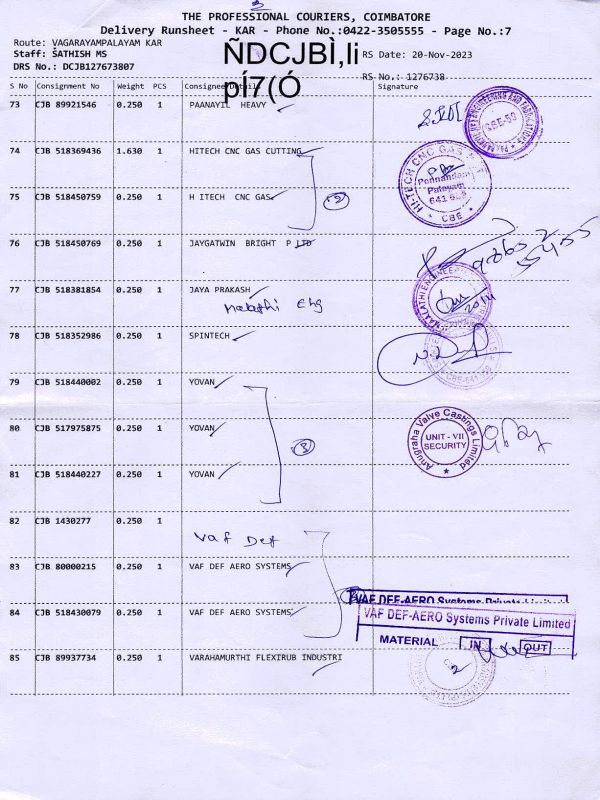 THE PROFESSIONAL COURIERS, COIMBATORE
Delivery Runsheet - KAR - Phone No.:0422-3505555 - Page No.:7
Route: VAGARAYAMPALAYAM KAR
Staff: SATHISH MS
RS Date: 20-Nov-2023
DRS No.: DCJB127673807
ÑDCJBÌ,li
pÍ7(Ó
RS No.: 1276738
S No Consignment No Weight PCS Consignee Details Signature
73 CJB 89921546 0.250 1 PAANAYIL HEAVY
74 CJB 518369436 1.630 1 HITECH CNC GAS CUTTING
75 CJB 518450759 0.250 1 H ITECH CNC GAS
2
HI-TECH CNC GAS
Ponnandam
Palayam
CBE
76 CJB 518450769 0.250 1 JAYGATWIN BRIGHT P LTD
77 CJB 518381854 0.250 1 JAYA PRAKASH
78 CJB 518352986 0.250 1 SPINTECH
79 CJB 518440002 0.250 1 YOVAN
80 CJB 517975875 0.250 1 YOVAN
3
Anugraha Valve Castings Limited
UNIT - VII
SECURITY
81 CJB 518440227 0.250 1 YOVAN
82 CJB 1430277 0.250 1
Vaf Def
83 CJB 80000215 0.250 1 VAF DEF AERO SYSTEMS
VAF DEF-AERO Systems Private Limited
84 CJB 518430079 0.250 1 VAF DEF AERO SYSTEMS
VAF DEF-AERO Systems Private Limited
MATERIAL IN OUT
85 CJB 89937734 0.250 1 VARAHAMURTHI FLEXIRUB INDUSTRI